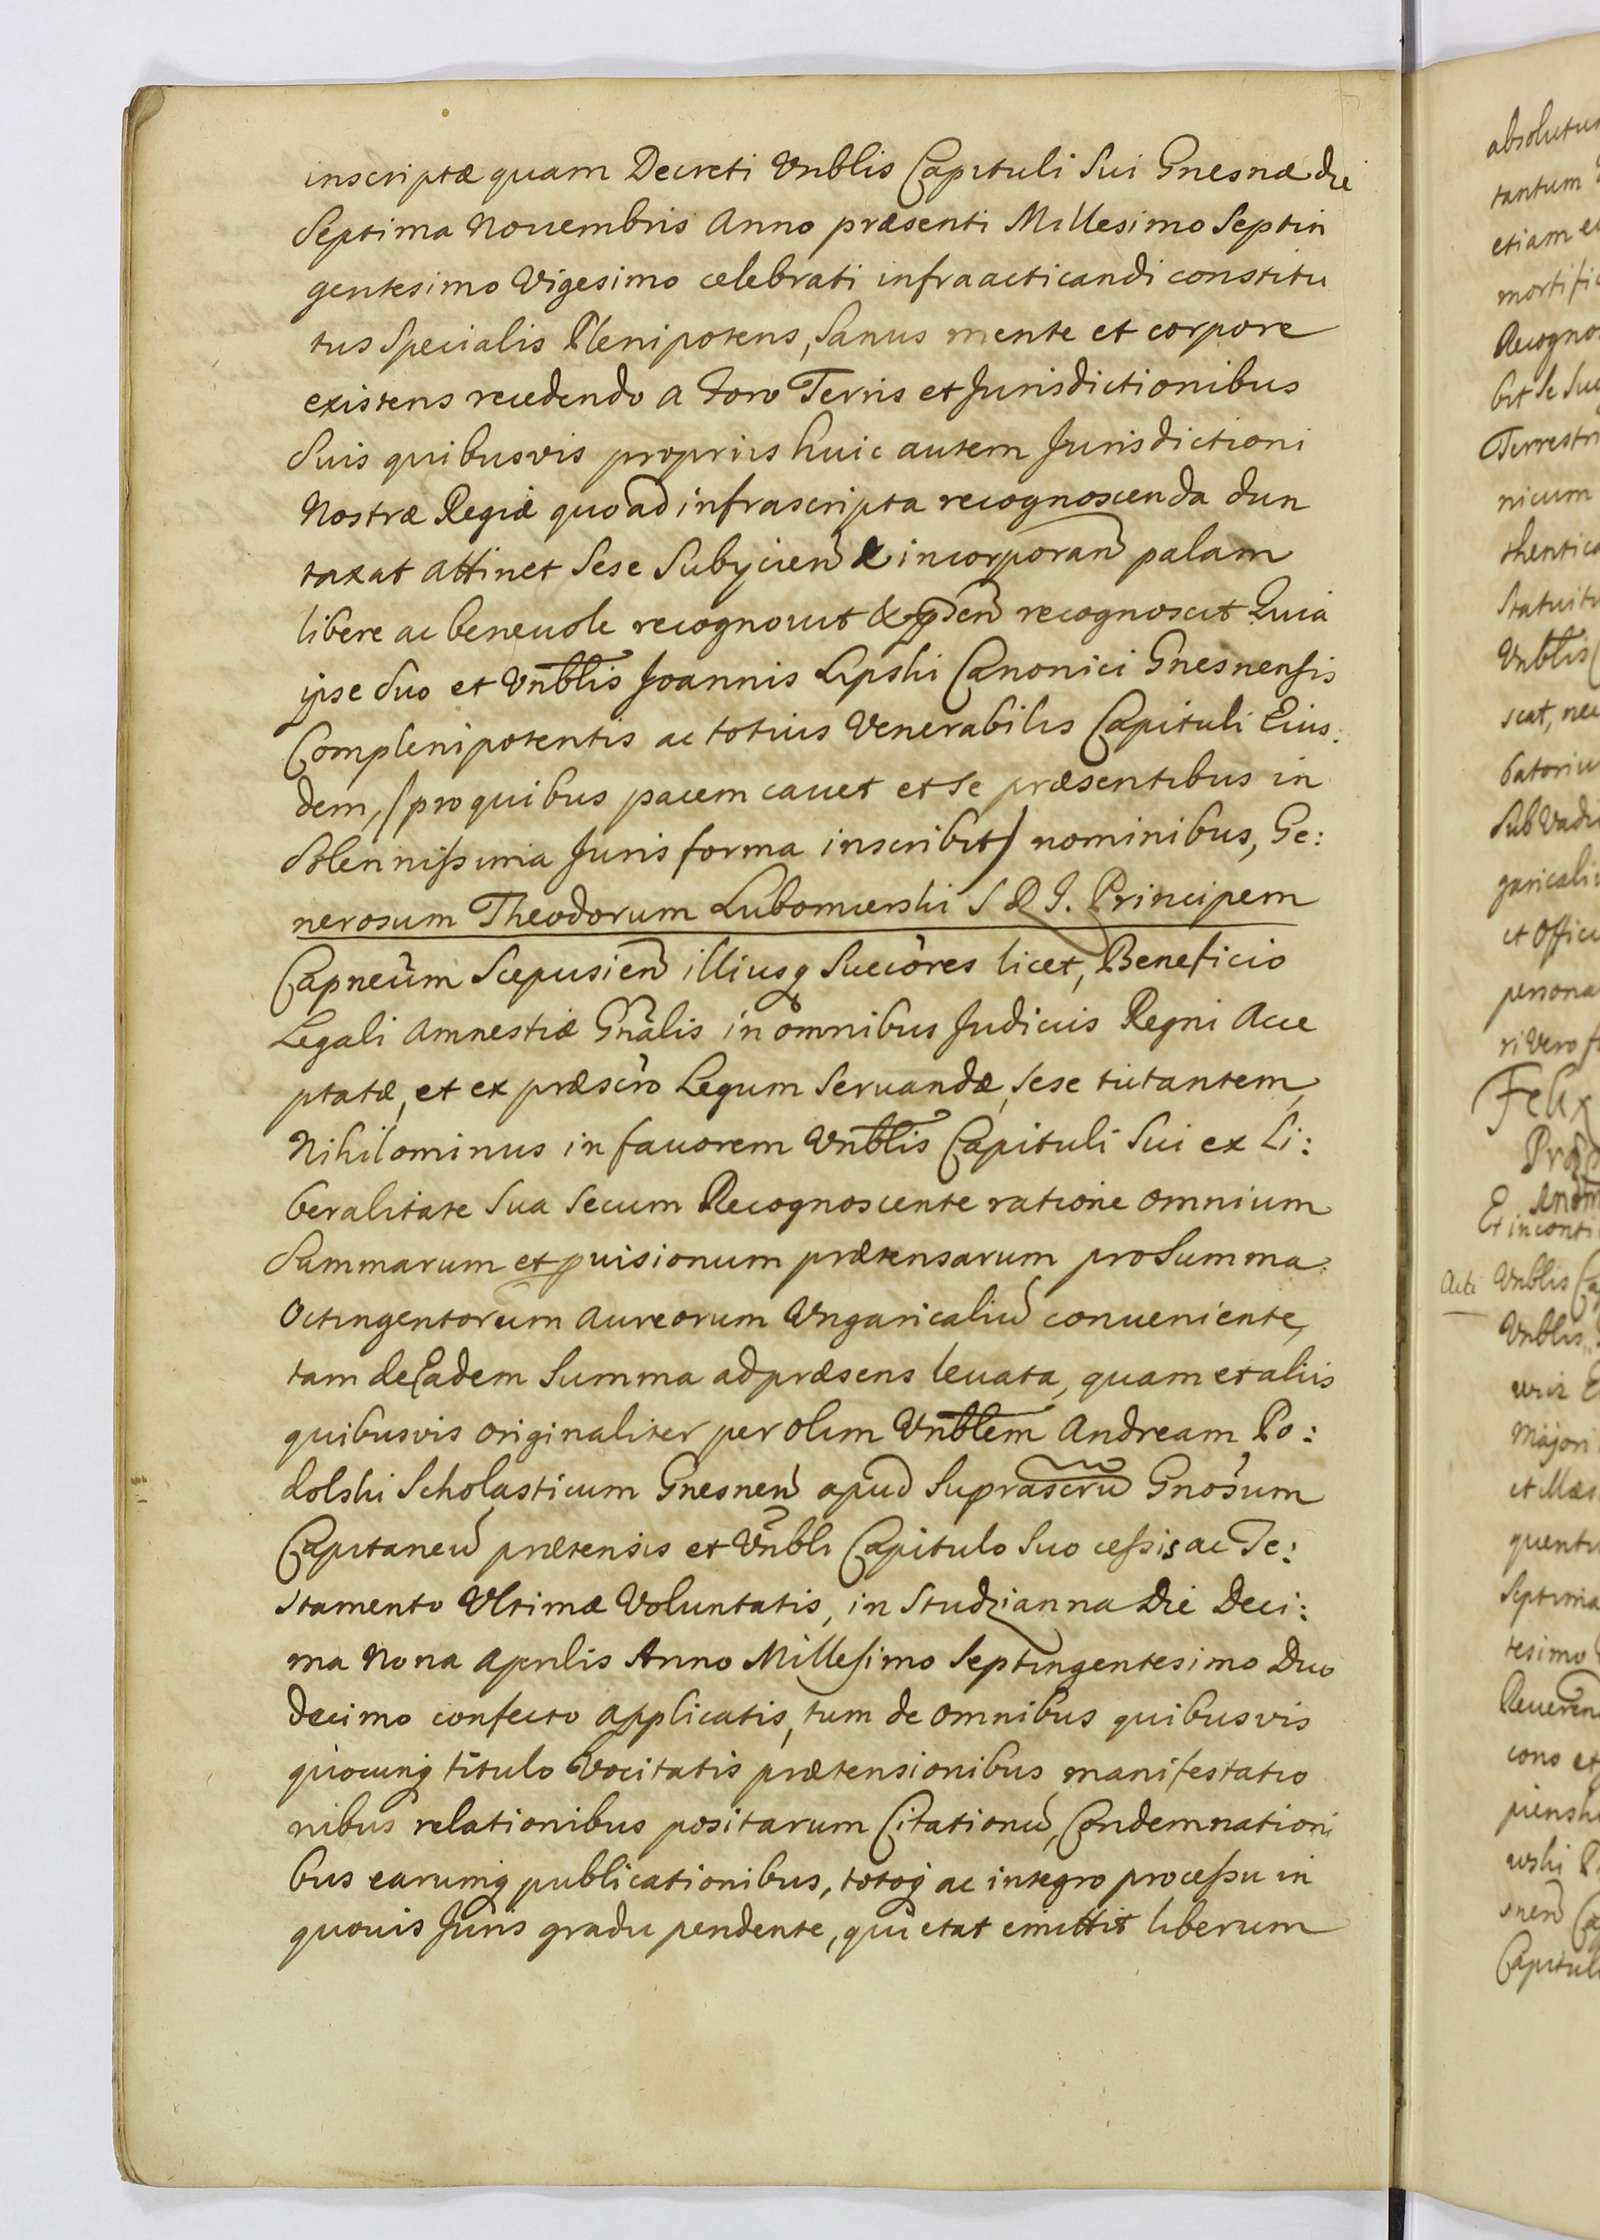 inscriptæ quam Decreti Vnblis Capituli Sui Gnesnæ die
Septima Nouembris Anno præsenti Millesimo Septin
gentesimo Vigesimo celebrati infraacticandi constitu
tus Specialis Plenipotens, Sanus mente et corpore
existens recedendo a foro Terris et Jurisdictionibus
Suis quibusvis proprijs huic autem Jurisdictioni
Nostræ Regiæ quoad infrascripta recognoscenda dun
taxat attinet Sese Subjicien & incorporan palam
libere ac beneuole recognouit & p p̃sen recognoscit Quia
ipse Suo et Vnblis Joannis Lipski Canonici Gnesnensis
Complenipotentis ac totius Venerabilis Capituli Eius:
dem, /pro quibus pacem cauet et Se præsentibus in
Solennissima Juris forma inscribit/ nominibus, Ge:
nerosum Theodorum Lubomierski S R J. Principem
Capneum Scepusien illiusq Succores licet, Beneficio
Legali Amnestiæ Gnalis in omnibus Judiciis Regni Acce
ptatæ, et ex præscro Legum Seruandæ, Sese tutantem,
Nihilominus in fauorem Vnblis Capituli Sui ex Li:
beralitate Sua Secum Recognoscente ratione omnium
Summarum et puisionum prætensarum pro Summa
Octingentorum Aureorum Vngaricaliu conueniente,
tam de Eadem Summa ad præsens leuata, quam et aliis
quibusvis originaliter per olim Vnblem Andream Po:
dolski Scholasticum Gnesnen apud Suprascru Gnosum
Capitaneu prætensis et Vnbli Capitulo Suo cessis ac Te:
stamento Vltimæ Voluntatis, in Studzianna Die Deci:
ma Nona Aprilis Anno Millesimo Septingentesimo Duo
decimo confecto applicatis, tum de omnibus quibusvis
quocunq titulo Vocitatis prætensionibus manifestatio
nibus relationibus positarum Citationu, Condemnationi
bus earumq publicationibus, totoq ac integro processu in
quouis Juris gradu pendente, quietat emittit liberum